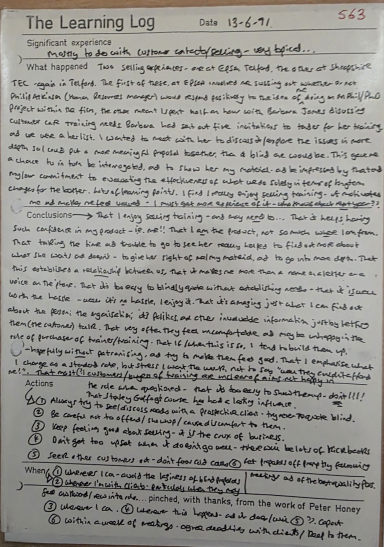 563
The Learning Log Date 13-6-91
Significant experience
Mostly to do with customer contacts/selling - very topical...
What happened Two selling experiences - one at EPSN, Telford, the other at Shropshire
TEC - again in Telford. The first of these, at EPSN involved me sussing out whether or not
Philip Atkinson (Human Resources manager) would respond positively to the idea of me doing an MPhil/PhD
project within the firm, the other meant I spent half an hour with Barbara James discussing
customer care training needs. Barbara had sent out five invitations to tender for her training
and we were on her list. I wanted to meet with her to discuss/explore the issues in more
depth so I could put a more meaningful proposal together, than a blind one would be. This gave me
a chance to in turn be interrogated, and to show her my material, and to be impressed by that and
my/our commitment to evaluating the effectiveness of what we do solely in terms of long term
changes for the better. Lots of learning points. I find I really enjoy selling training - it motivates
me and makes me feel valued - I must get more experience of it -
Conclusions → That I enjoy selling training - and may need to... That it helps having
such confidence in my product - ie. me!! That I am the product, not so much where I am from.
That taking the time and trouble to go to see her really helped to find out more about
what she wants and doesn't - to give her sight of me/my material, and to go into more depth. That
this established a relationship between us, that it makes me more than a name on a letter or a
voice on the phone. That it's too easy to blindly quote without establishing needs - that it is well
worth the hassle - well it's no hassle, I enjoy it. That it's amazing just what I can find out
about the person, the organisation, its politics, and other invaluable information just by letting
them (the customer) talk. That very often they feel uncomfortable and may be unhappy in the
role of purchaser of trainer/training. That if/when this is so, I tend to build them up,
hopefully without patronising, and try to make them feel good. That I emphasise what
I charge as a standard rate, but stress I want the work, not to say
me!! That most customers/buyers of training are unclear and
Actions the role when questioned - that it's too easy to show them up - don't!!!
That Stokely Gaffer course he had a lasting influence.
① Always try to see/discuss needs with a prospective client - try never to quote blind.
② Be careful not to offend/show up/cause discomfort to them.
③ Keep feeling good about selling - it is the crux of business.
④ Don't get too upset when it doesn't go well - there will be lots of knock backs
⑤ Seek other customers out - don't fear cold calls ⑥ Get proposals off promptly following
When ① Wherever I can - avoid the business of blind proposals meetings and of the best quality poss.
② Wherever I'm with clients - particularly when they may
feel awkward/new into role... pinched, with thanks, from the work of Peter Honey
③ Wherever I can. ④ Wherever this happens - and it does/will ⑤ ??
⑥ Within a week of meetings - agree deadlines with clients/keep to them.